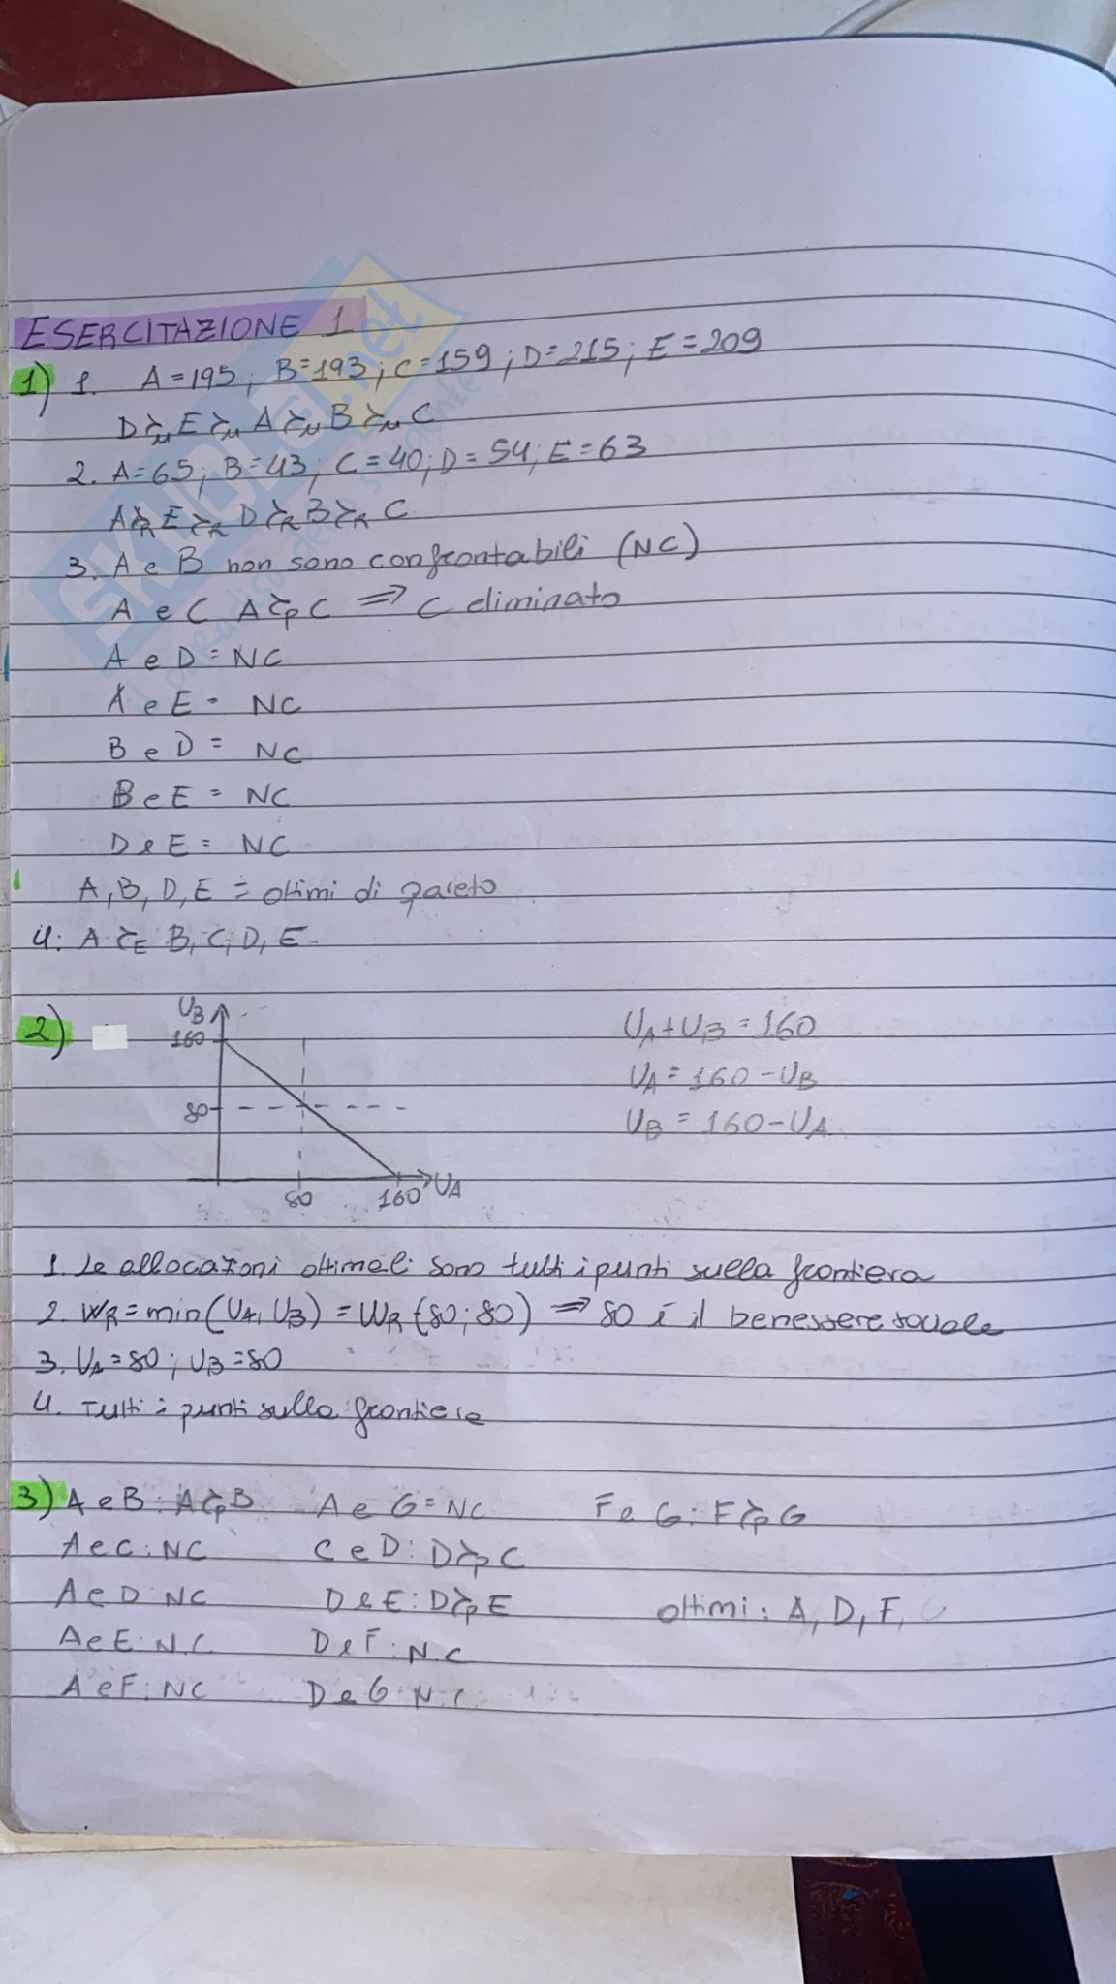 ESERCITAZIONE 1
1) 1. A=195; B=193; C=159; D=215; E=209
D≿ᵤE≿ᵤA≿ᵤB≿ᵤC
2. A=65; B=43; C=40; D=54; E=63
A≿R E≿R D≿R B≿R C
3. A e B non sono confrontabili (NC)
A e C A≿pC ⇒ C eliminato
A e D = NC
A e E = NC
B e D = NC
B e E = NC
D e E = NC
A, B, D, E = ottimi di pareto
4. A ≿E B, C, D, E
2)
UB
160
80
80 160 UA
UA+UB=160
UA=160-UB
UB=160-UA
1. Le allocazioni ottimali sono tutti i punti sulla frontiera
2. WR=min(UA, UB)=WR(80;80) ⇒ 80 è il benessere sociale
3. UA=80; UB=80
4. Tutti i punti sulla frontiera
3) A e B: A≿pB A e G=NC F e G: F≿pG
A e C: NC C e D: D≿pC
A e D: NC D e E: D≿pE ottimi: A, D, F,
A e E: N.C. D e F: N.C
A e F: NC D e G: N.C.
SKUOLA.net